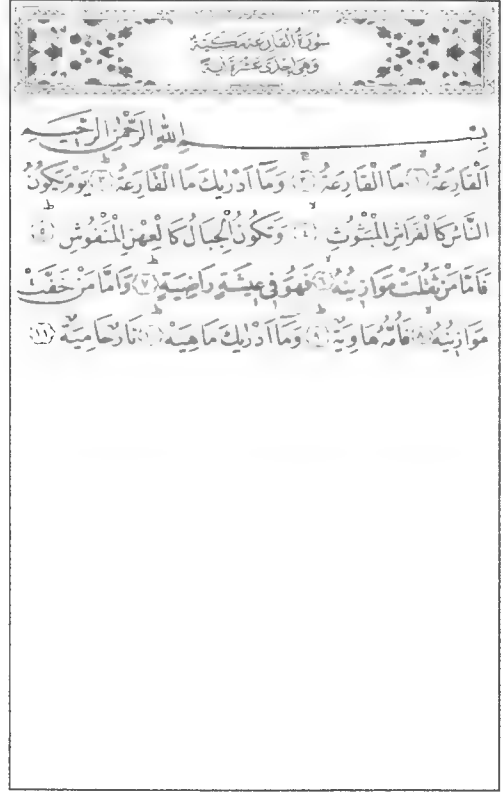 سُورَةُ الْقَارِعَةِ مَكِّيَّةٌ
وَهِيَ اِحْدٰى عَشْرَةَ اٰيَةً
بِسْمِ اللّٰهِ الرَّحْمٰنِ الرَّحٖيمِ
اَلْقَارِعَةُ ﴿١﴾ مَا الْقَارِعَةُ ﴿٢﴾ وَمَٓا اَدْرٰيكَ مَا الْقَارِعَةُ ﴿٣﴾ يَوْمَ يَكُونُ
النَّاسُ كَالْفَرَاشِ الْمَبْثُوثِ ﴿٤﴾ وَتَكُونُ الْجِبَالُ كَالْعِهْنِ الْمَنْفُوشِ ﴿٥﴾
فَاَمَّا مَنْ ثَقُلَتْ مَوَازٖينُهُ ﴿٦﴾ فَهُوَ فٖي عٖيشَةٍ رَاضِيَةٍ ﴿٧﴾ وَاَمَّا مَنْ خَفَّتْ
مَوَازٖينُهُ ﴿٨﴾ فَاُمُّهُ هَاوِيَةٌ ﴿٩﴾ وَمَٓا اَدْرٰيكَ مَا هِيَهْ ﴿١٠﴾ نَارٌ حَامِيَةٌ ﴿١١﴾